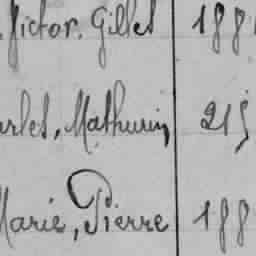 Victor, Gilles 188
arles, Mathurin, 215
Marie, Pierre 188